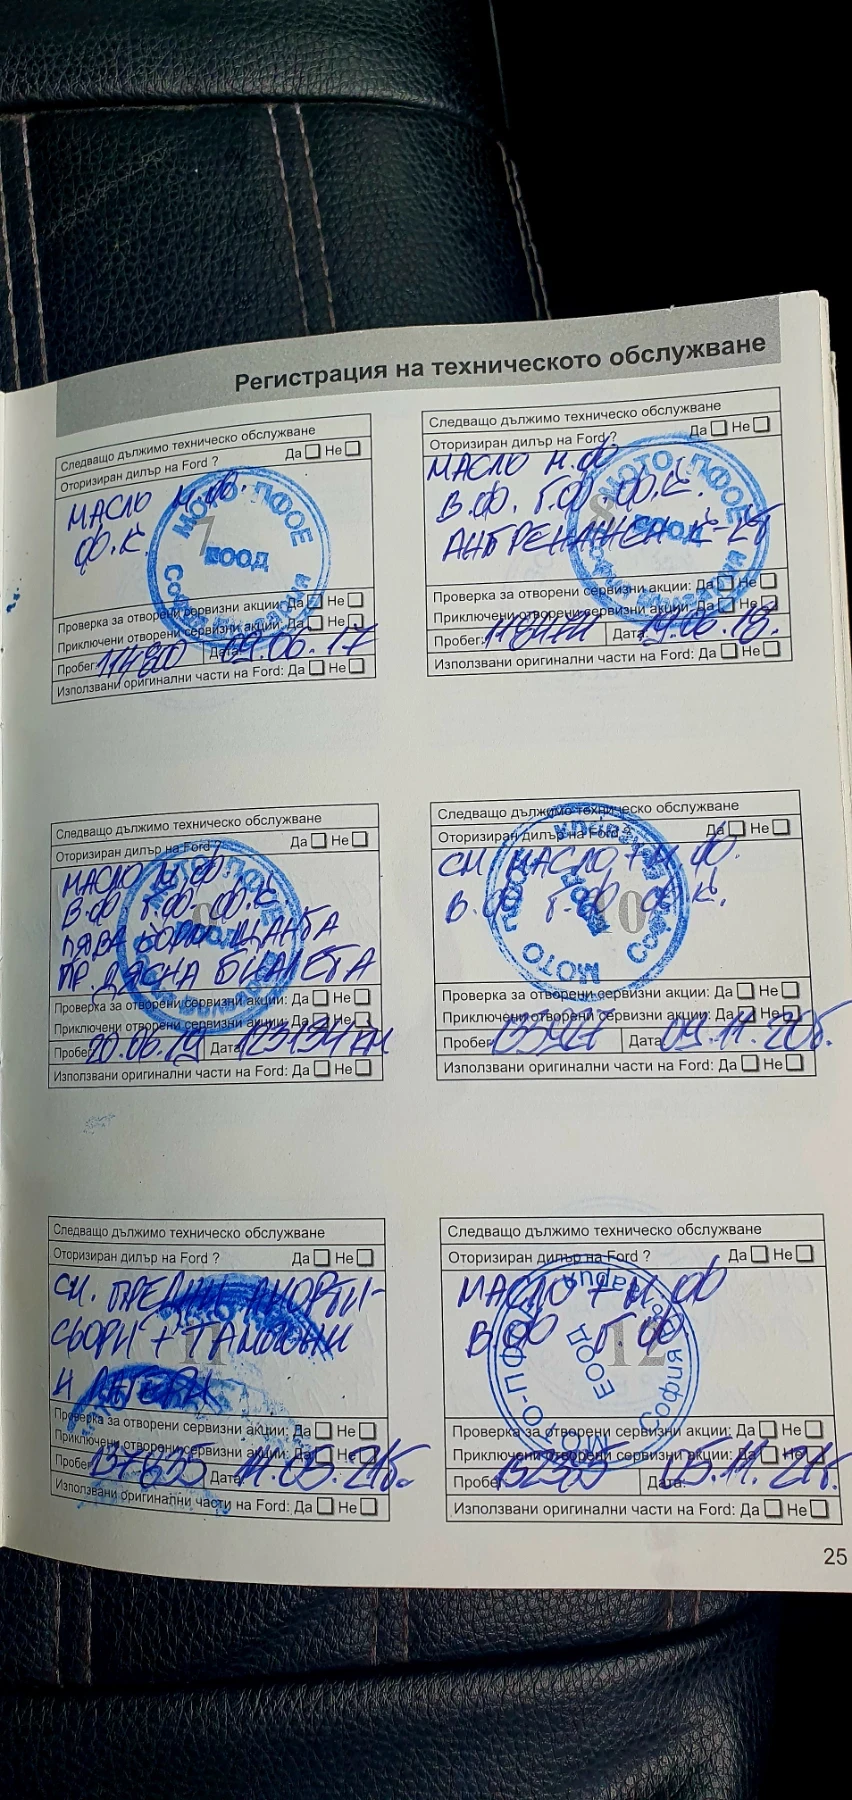 Регистрация на техническото обслужване
Следващо дължимо техническо обслужване
Оторизиран дилър на Ford ? Да Не
МАСЛО М.Ф.
Ф.К.
7
МОТО ПФОЕ
ЕООД
София България
Проверка за отворени сервизни акции: Да Не
Приключени отворени сервизни акции: Да Не
Пробег: Дата: 09.06.17
Използвани оригинални части на Ford: Да Не
Следващо дължимо техническо обслужване
Оторизиран дилър на Ford ? Да Не
МАСЛО М.Ф.
В.Ф. Г.Ф. Ф.К.
8
МОТО ПФОЕ
ЕООД
Проверка за отворени сервизни акции: Да Не
Приключени отворени сервизни акции: Да Не
Пробег: Дата: 19.06.18.
Използвани оригинални части на Ford: Да Не
Следващо дължимо техническо обслужване
Оторизиран дилър на Ford ? Да Не
МАСЛО М.Ф.
В.Ф Г.Ф. Ф.К
ЛЯВА ЩАНГА
ПР. ДЯСНА БИАЛЕТА
Проверка за отворени сервизни акции: Да Не
Приключени отворени сервизни акции: Да Не
Пробег: 20.06.19 Дата: 123134 км
Използвани оригинални части на Ford: Да Не
Следващо дължимо техническо обслужване
Оторизиран дилър на Ford ? Да Не
СМ. МАСЛО + М.Ф.
В.Ф Г.Ф Ф.К.
10
МОТО ПФОЕ
ЕООД
София
Проверка за отворени сервизни акции: Да Не
Приключени отворени сервизни акции: Да Не
Пробег: 133927 Дата: 09.11.20г.
Използвани оригинални части на Ford: Да Не
Следващо дължимо техническо обслужване
Оторизиран дилър на Ford ? Да Не
СМ. ПРЕДНИ АМОРТИ-
СЬОРИ + ТАМПОНИ
И ЛАГЕРИ
11
Проверка за отворени сервизни акции: Да Не
Приключени отворени сервизни акции: Да Не
Пробег: 137635 Дата: 11.05.21г.
Използвани оригинални части на Ford: Да Не
Следващо дължимо техническо обслужване
Оторизиран дилър на Ford ? Да Не
МАСЛО + М.Ф
В.Ф Г.Ф.
12
МОТО-ПФОЕ
ЕООД
София
Проверка за отворени сервизни акции: Да Не
Приключени отворени сервизни акции: Да Не
Пробег: Дата: 15.11.21г.
Използвани оригинални части на Ford: Да Не
25